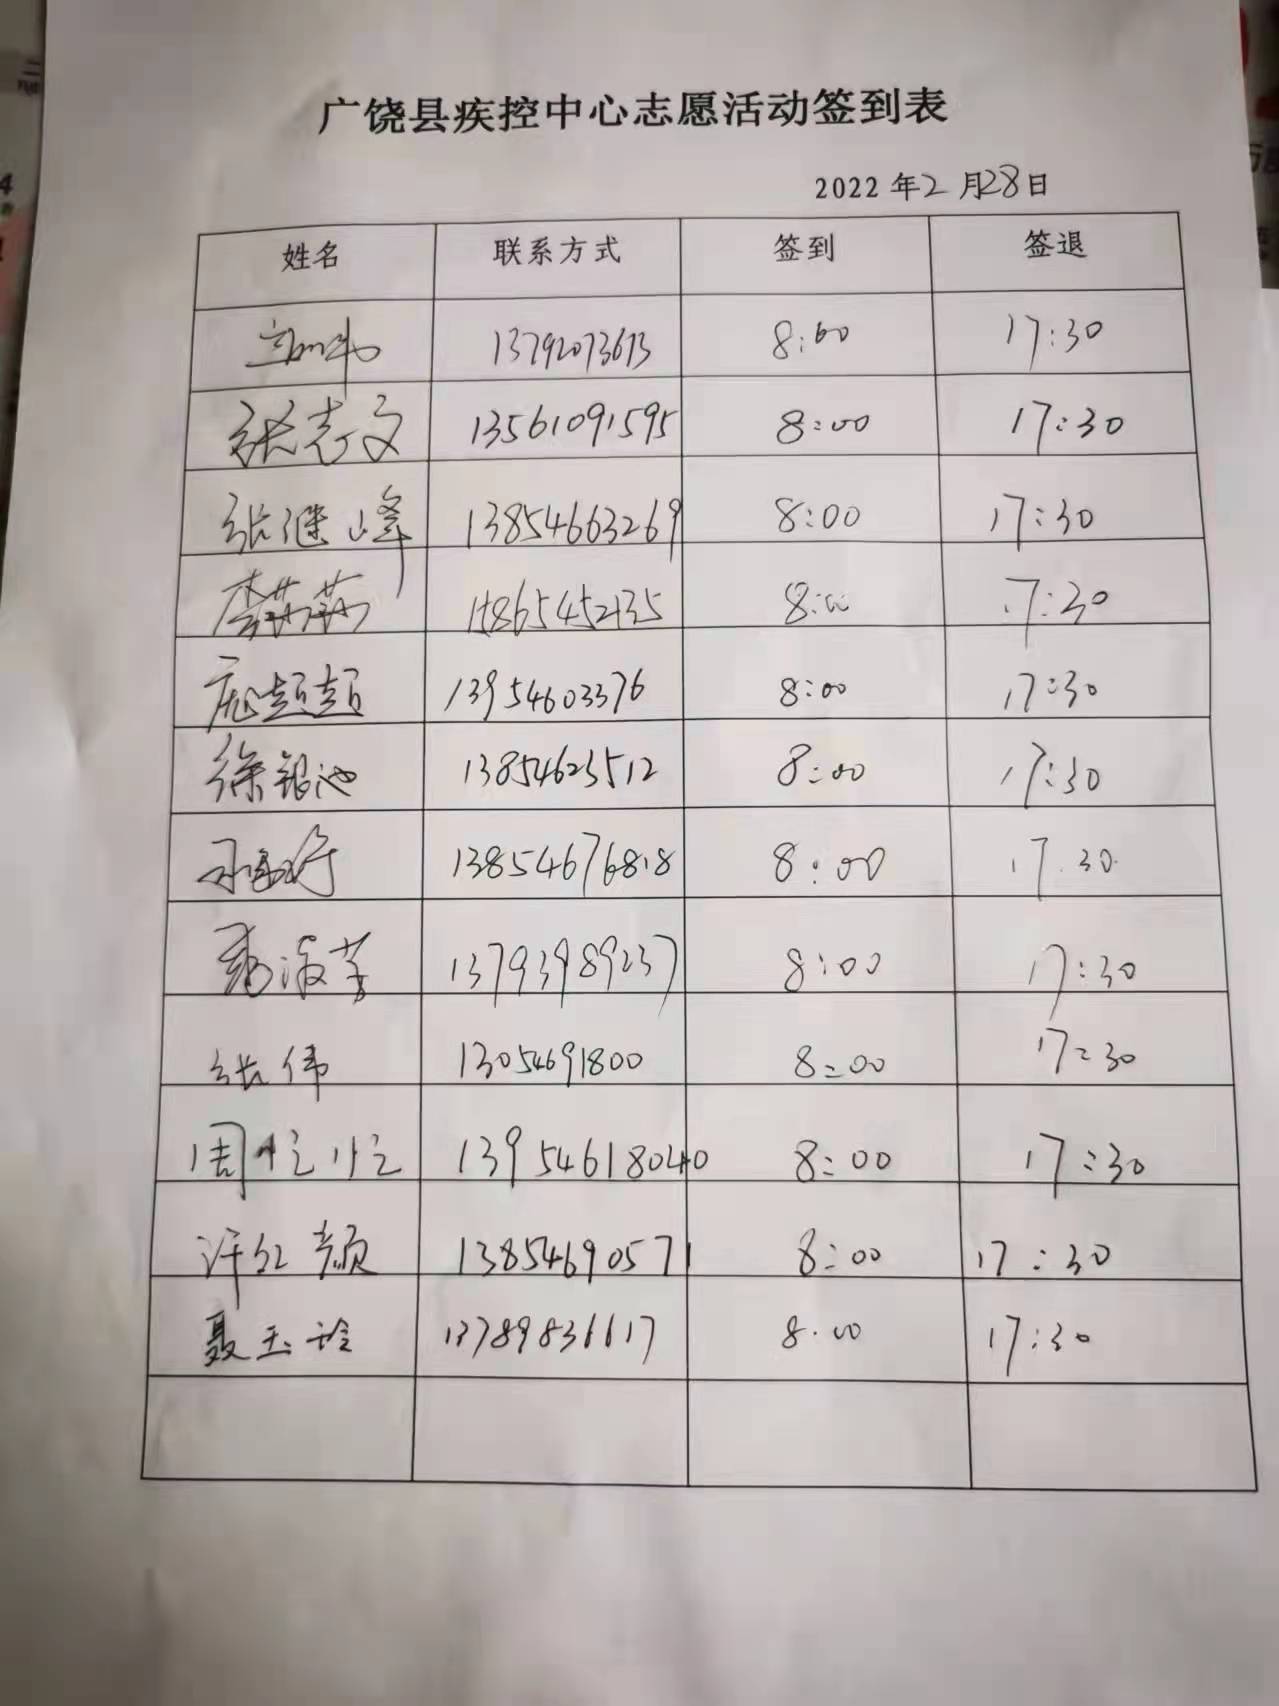 广饶县疾控中心志愿活动签到表
2022年2月28日
姓名 联系方式 签到 签退
13792073673 8:00 17:30
张志文 13561091595 8:00 17:30
张继峰 13854663269 8:00 17:30
李茜茜 8:00 17:30
庞超超 13954603376 8:00 17:30
徐银池 13854623512 8:00 17:30
13854676818 8:00 17:30
淑芳 13793989237 8:00 17:30
张伟 13054691800 8:00 17:30
周忆忆 13954618040 8:00 17:30
许红颜 13854690571 8:00 17:30
聂玉玲 13789836617 8:00 17:30